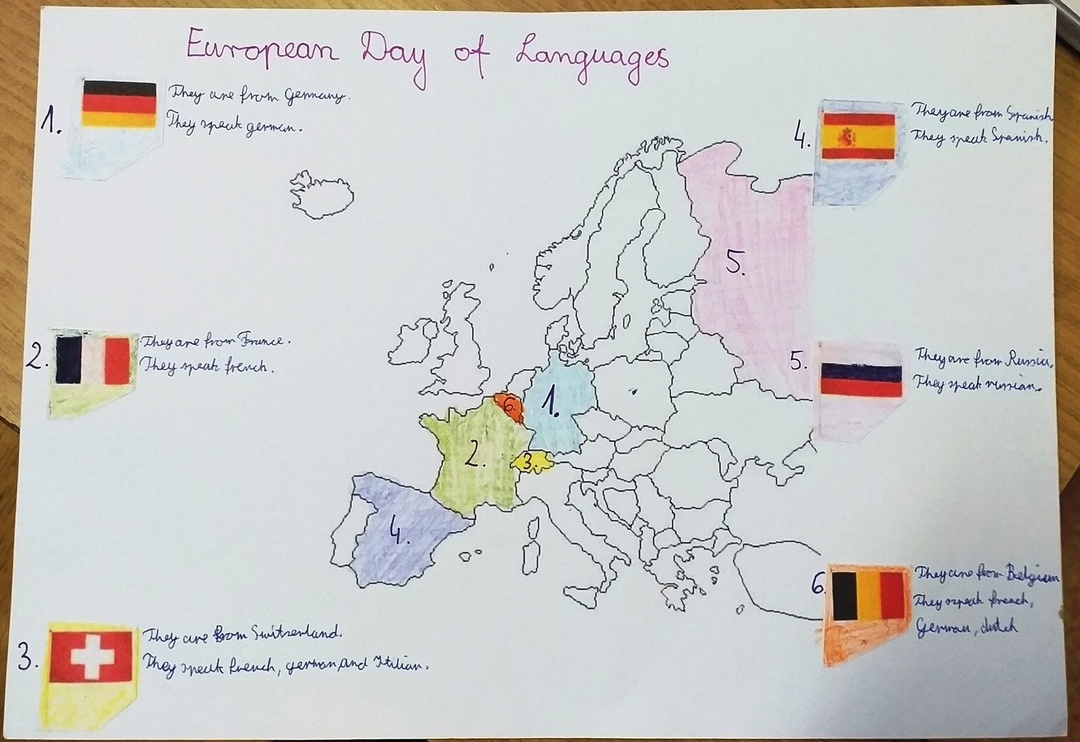 European Day of Languages
1.
They are from Germany.
They speak german.
2.
They are from France.
They speak french.
3.
They are from Switzerland.
They speak french, german and Itilian.
4.
They are from Spanish
They speak Spanish.
5.
They are from Russia.
They speak russian.
6.
They are from Belgium
They speak french,
German, dutch
5.
6.
1.
2.
3.
4.